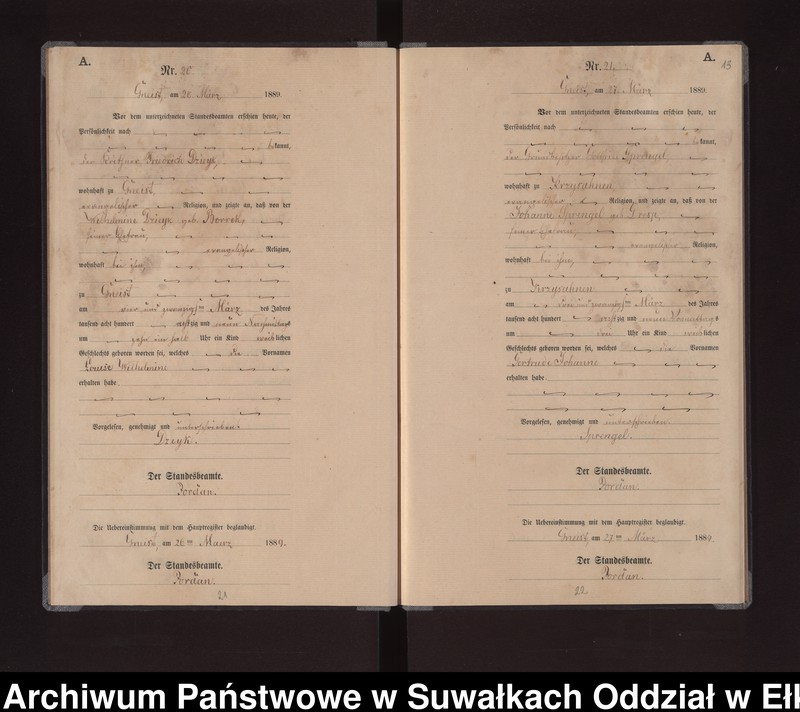 A.
Nr. 20.
Gneist, am 26. März 1889.
Vor dem unterzeichneten Standesbeamten erschien heute, der
Persönlichkeit nach
bekannt,
der Friedrich Dzeyk,
wohnhaft zu Gneist
evangelischer Religion, und zeigte an, daß von der
Wilhelmine Dzeyk geb.
seiner Ehefrau,
evangelischer Religion,
wohnhaft bei ihm,
zu Gneist
am vier und zwanzigsten März des Jahres
tausend acht hundert achtzig und neun Nachmittags
um zehn ein halb Uhr ein Kind weiblichen
Geschlechts geboren worden sei, welches die Vornamen
Louise Wilhelmine
erhalten habe.
Vorgelesen, genehmigt und unterschrieben.
Dzeyk.
Der Standesbeamte.
Jordan.
Die Uebereinstimmung mit dem Hauptregister beglaubigt.
Gneist, am 26ten Maerz 1889.
Der Standesbeamte.
Jordan.
21
A.
13
Nr. 21.
Gneist, am 27. März 1889.
Vor dem unterzeichneten Standesbeamten erschien heute, der
Persönlichkeit nach
bekannt,
der Sprengel
wohnhaft zu Krzysahnen,
evangelischer Religion, und zeigte an, daß von der
Johanne Sprengel geb.
seiner Ehefrau,
evangelischer Religion,
wohnhaft bei ihm,
zu Krzysahnen
am zwanzigsten März des Jahres
tausend acht hundert achtzig und neun Vormittags
um Uhr ein Kind weiblichen
Geschlechts geboren worden sei, welches die Vornamen
Gertrude Johanne
erhalten habe.
Vorgelesen, genehmigt und unterschrieben.
Sprengel.
Der Standesbeamte.
Jordan.
Die Uebereinstimmung mit dem Hauptregister beglaubigt.
Gneist, am 27ten März 1889.
Der Standesbeamte.
Jordan.
22
Archiwum Państwowe w Suwałkach Oddział w Ełk